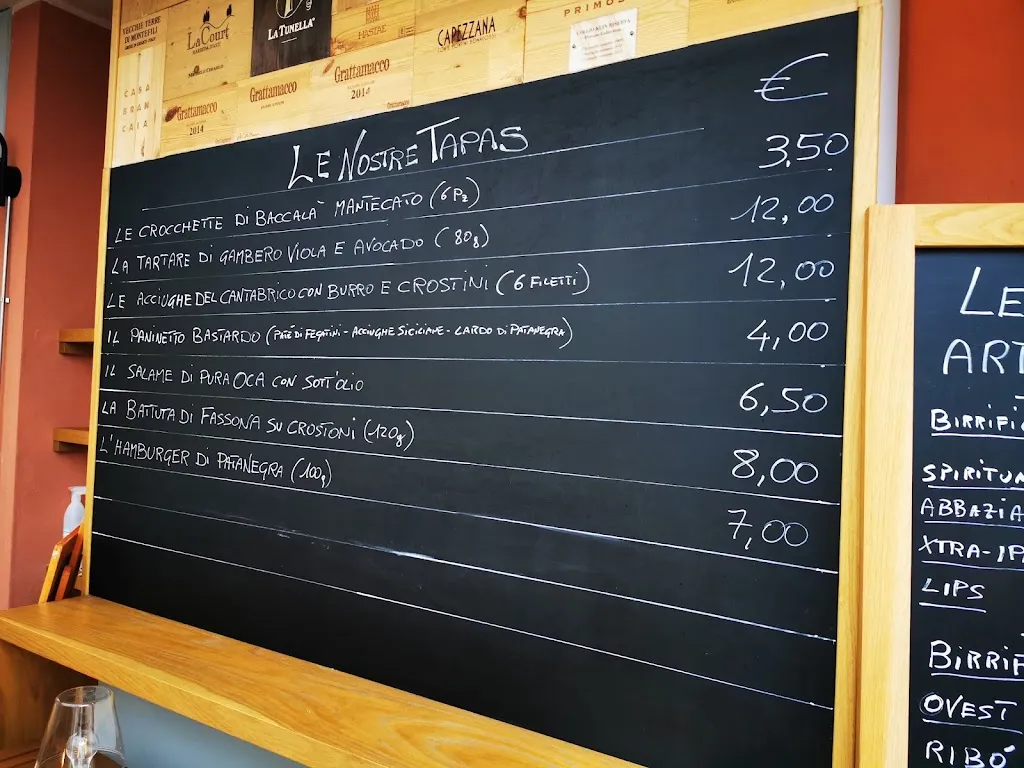 VECCHIE TERRE
DI MONTEFILI
La Court
LA TUNELLA
HASTAE
CAPEZZANA
PRIMOS
CASA
BRAN
CAIA
Grattamacco
2014
Grattamacco
Grattamacco
2014
Grattamacco
€
LE NOSTRE TAPAS
LE CROCCHETTE DI BACCALÀ MANTECATO (6 PZ) 3,50
LA TARTARE DI GAMBERO VIOLA E AVOCADO (80g) 12,00
LE ACCIUGHE DEL CANTABRICO CON BURRO E CROSTINI (6 FILETTI) 12,00
IL PANINETTO BASTARDO (PATÉ DI FEGATINI - ACCIUGHE SICILIANE - LARDO DI PATANEGRA) 4,00
IL SALAME DI PURA OCA CON SOTT'OLIO 6,50
LA BATTUTA DI FASSONA SU CROSTONI (120g) 8,00
L'HAMBURGER DI PATANEGRA (100g) 7,00
LE
ART
BIRRIFI
SPIRITUM
ABBAZIA
XTRA-IP
LIPS
BIRRIF
OVEST
RIBÓ